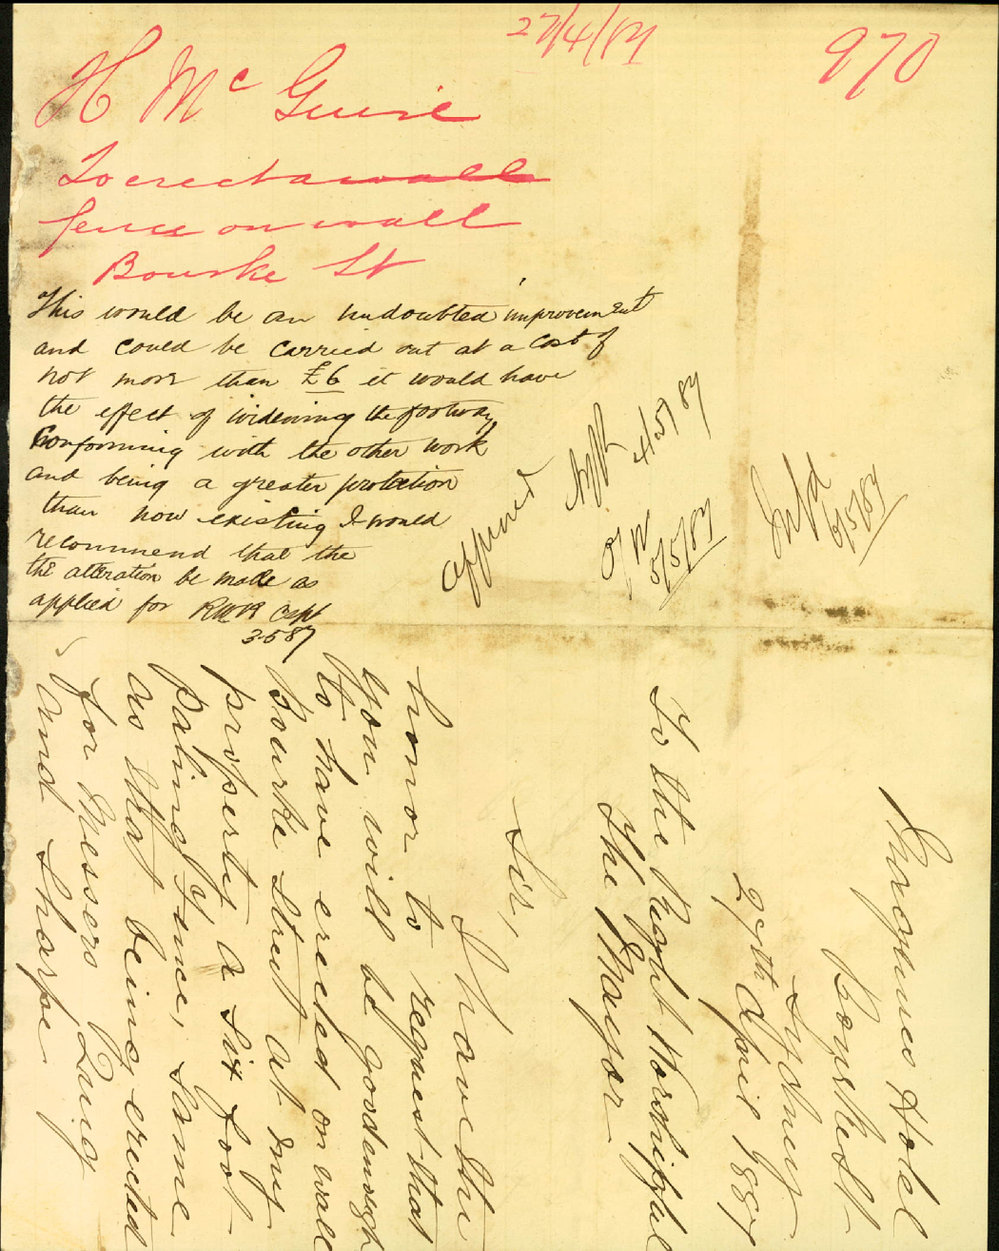 27/4/87
970
H McGuire
To erect a wall
fence on wall
Bourke St
This would be an undoubted improvement
and could be carried out at a cost of
not more than £6 it would have
the effect of widening the footway
conforming with the other work
and being a greater protection
than now existing I would
recommend that the
the alteration be made as
applied for RWR
3.5.87
approved
4/5/87
5/5/87
5/5/87
Hotel
Bourke St
Sydney
27th April 1887
To the Right Worshipful
The Mayor
Sir,
I have the
honor to request that
you will be good enough
to have erected on wall
Bourke Street at my
property, a six foot
paling fence, same
as that being erected
for Messers Ping
and Sharpe